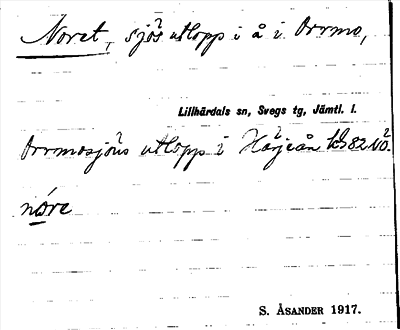 Noret, sjös utlopp i å i Orrmo,
Lillhärdals sn, Svegs tg, Jämtl. l.
Orrmosjöns utlopp i Härjeån 82 NÖ.
nóre
S. ÅSANDER 1917.